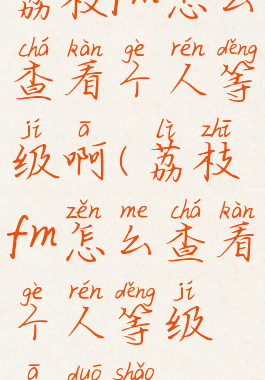 荔枝fm怎么
chá kàn gè rén děng
查看个人等
jí ā lì zhī
级啊(荔枝
zěn me chá kàn
fm怎么查看
gè rén děng jí
个人等级
ā duō shǎo